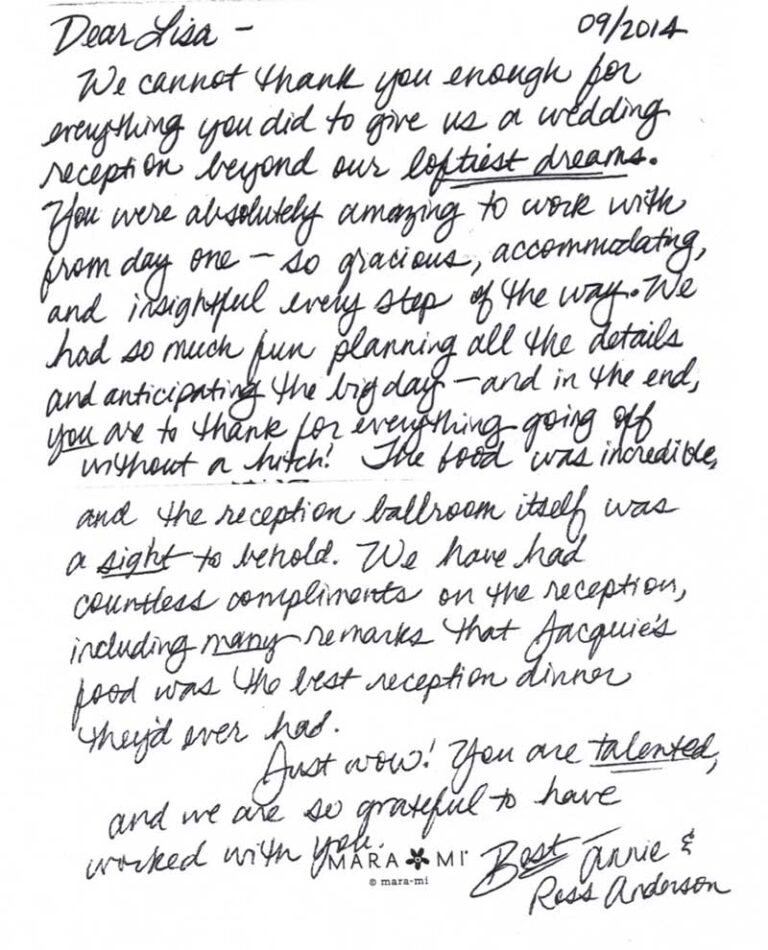 Dear Lisa - 09/2014
We cannot thank you enough for
everything you did to give us a wedding
reception beyond our loftiest dreams.
You were absolutely amazing to work with
from day one - so gracious, accommodating,
and insightful every step of the way. We
had so much fun planning all the details
and anticipating the big day - and in the end,
you are to thank for everything going off
without a hitch! The food was incredible,
and the reception ballroom itself was
a sight to behold. We have had
countless compliments on the reception,
including many remarks that Jacquie's
food was the best reception dinner
they'd ever had.
Just wow! You are talented,
and we are so grateful to have
worked with you.
MARA MI
© mara-mi
Best - Annie &
Ross Anderson